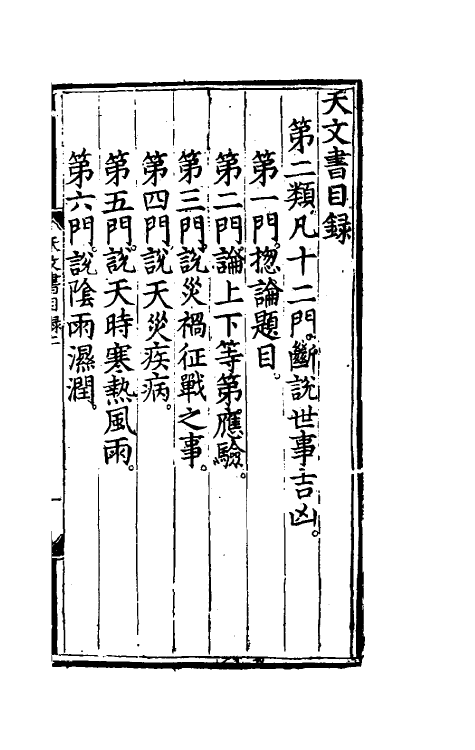 天文書目録
第二類。凡十二門。斷說世事吉凶。
第一門。揔論題目。
第二門。論上下等第應驗。
第三門。說災禍征戰之事。
第四門。說天災疾病。
第五門。說天時寒熱風雨。
第六門。說陰雨濕潤。
天文書目録二
一